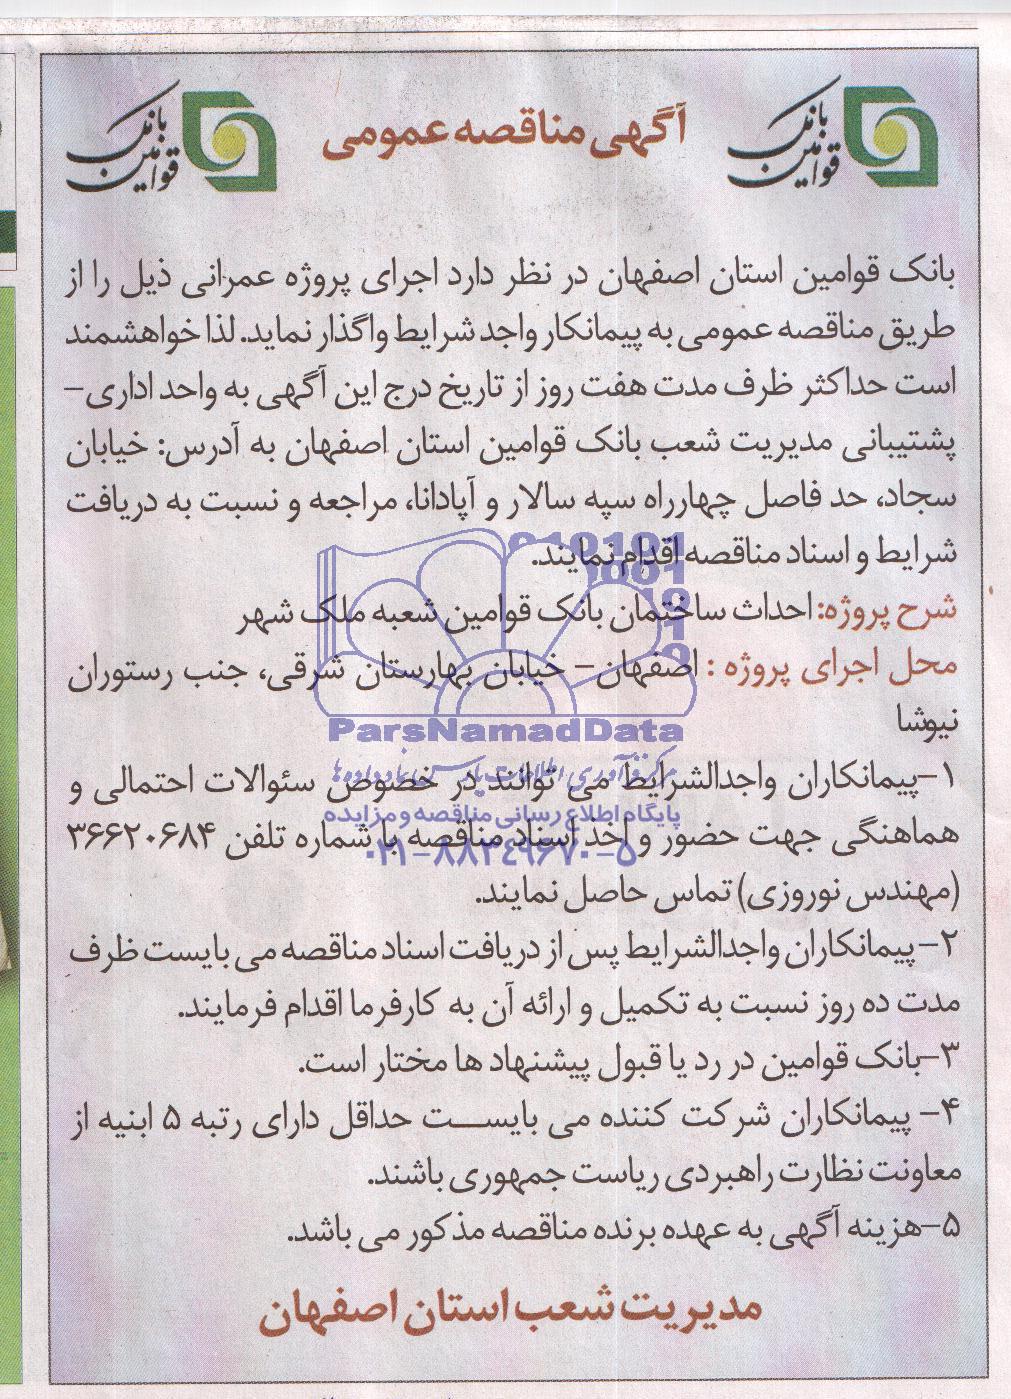 بانک قوامین
آگهی مناقصه عمومی
بانک قوامین
بانک قوامین استان اصفهان در نظر دارد اجرای پروژه عمرانی ذیل را از
طریق مناقصه عمومی به پیمانکار واجد شرایط واگذار نماید. لذا خواهشمند
است حداکثر ظرف مدت هفت روز از تاریخ درج این آگهی به واحد اداری–
پشتیبانی مدیریت شعب بانک قوامین استان اصفهان به آدرس: خیابان
سجاد، حد فاصل چهارراه سپه سالار و آپادانا، مراجعه و نسبت به دریافت
شرایط و اسناد مناقصه اقدام نمایند.
شرح پروژه: احداث ساختمان بانک قوامین شعبه ملک شهر
محل اجرای پروژه : اصفهان– خیابان بهارستان شرقی، جنب رستوران
نیوشا
ParsNamadData
۱–پیمانکاران واجدالشرایط می توانند در خصوص سئوالات احتمالی و
پایگاه اطلاع رسانی مناقصه و مزایده
هماهنگی جهت حضور و اخذ اسناد مناقصه با شماره تلفن ۳۶۶۲۰۶۸۴
۰۲۱–۸۸۳۴۹۶۷۰–۵
(مهندس نوروزی) تماس حاصل نمایند.
۲– پیمانکاران واجدالشرایط پس از دریافت اسناد مناقصه می بایست ظرف
مدت ده روز نسبت به تکمیل و ارائه آن به کارفرما اقدام فرمایند.
۳–بانک قوامین در رد یا قبول پیشنهاد ها مختار است.
۴– پیمانکاران شرکت کننده می بایست حداقل دارای رتبه ۵ ابنیه از
معاونت نظارت راهبردی ریاست جمهوری باشند.
۵–هزینه آگهی به عهده برنده مناقصه مذکور می باشد.
مدیریت شعب استان اصفهان